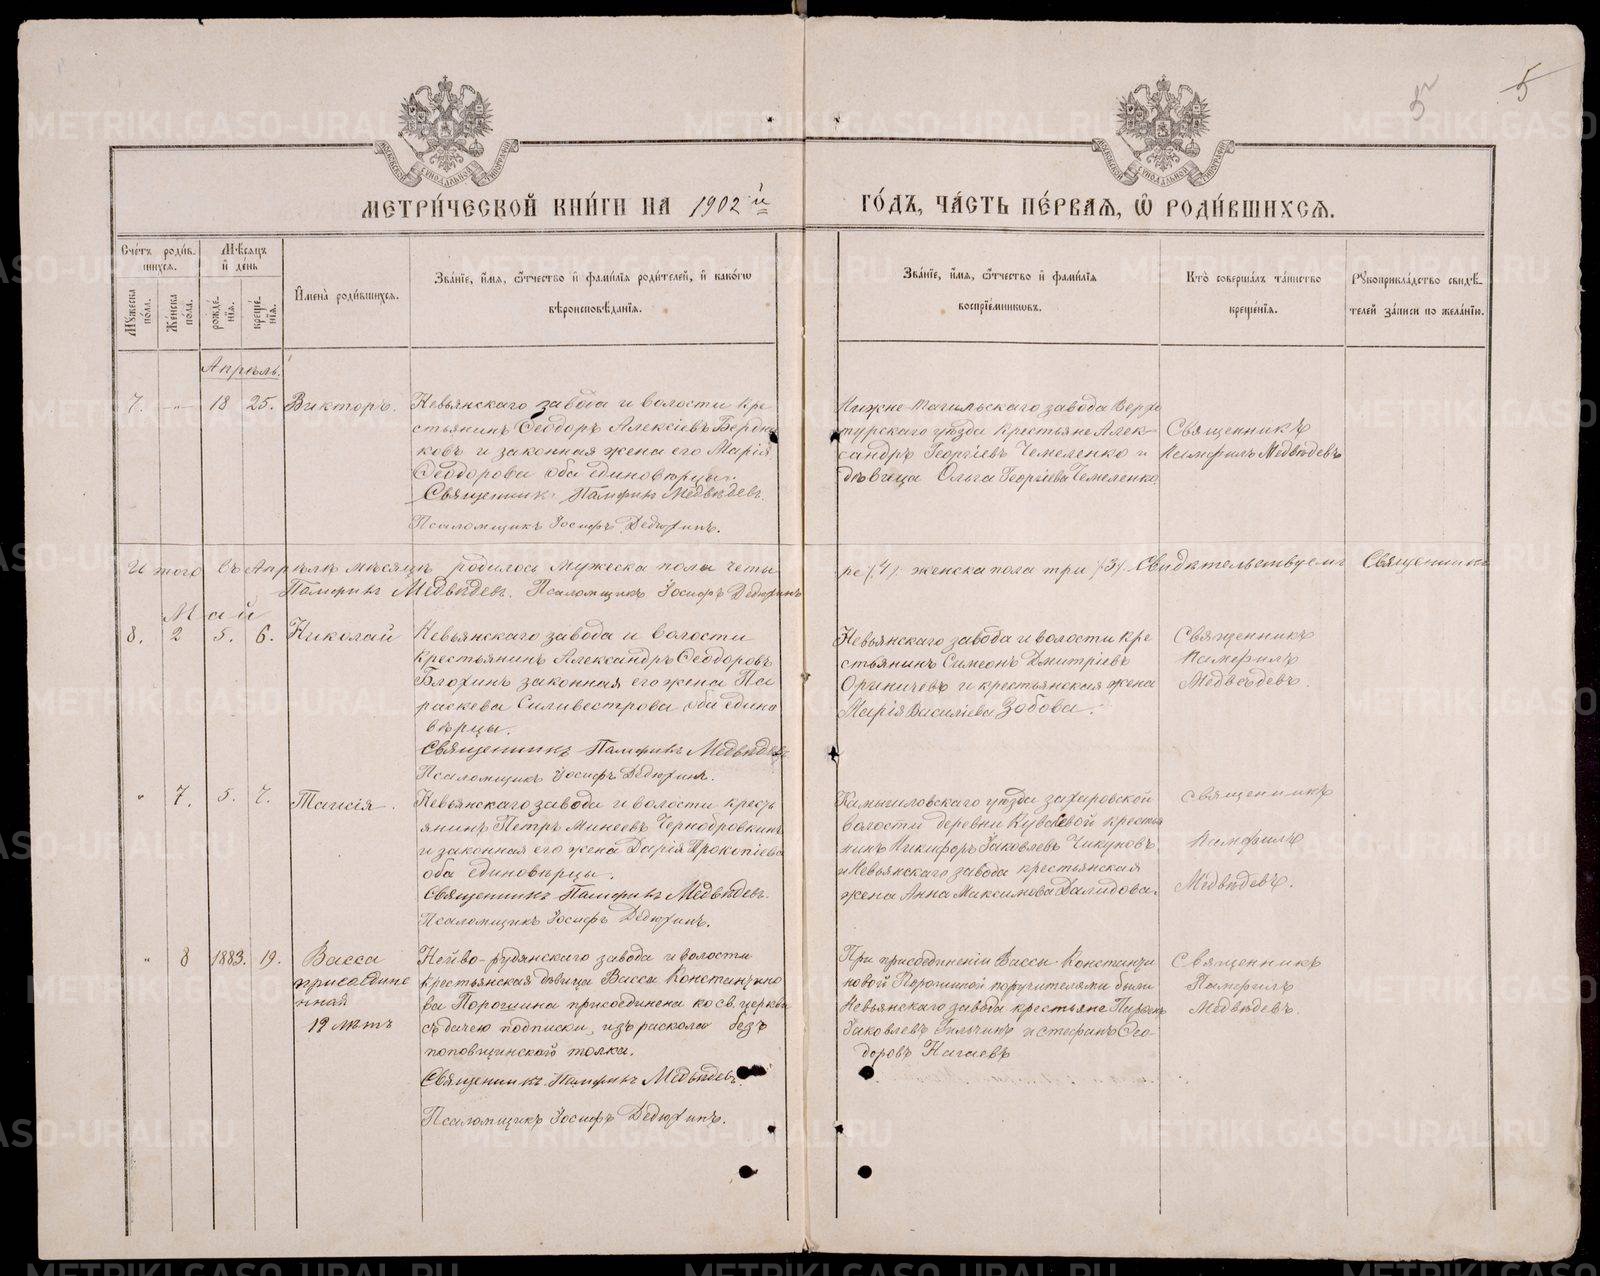 5
МЕТРИ́ЧЕСКОЙ КНИ́ГИ НА 1902 й
ГО́ДЪ, ЧА́СТЬ ПЕ́РВАЯ, Ѿ РОДИ́ВШИХСЯ.
Счетъ родив-
шихся.
Мѣсяцъ
и день
Мужеска
пола.
Женска
пола.
рожде-
нія.
креще-
нія.
Имена родившихся.
Званіе, имя, отчество и фамилія родителей, и какогѡ
вѣроисповѣданія.
Званіе, имя, отчество и фамилія
воспріемникѡвъ.
Кто совершалъ таинство
крещенія.
Рукоприкладство свидѣ-
телей записи по желанію.
Апрѣль.
7. -"- 18 25. Викторъ.
Невьянскаго завода и волости кре
стьянинъ Ѳеодоръ Алексіевъ Бердни
ковъ и законная жена его Марія
Ѳеодорова оба единовѣрцы.
Священникъ Памфилъ Медвѣдевъ.
Псаломщикъ Іосифъ Дедюхинъ.
Нижне-Тагильскаго завода Верхо
турскаго уѣзда крестьяне Алек-
сандръ Георгіевъ Чемеленко и
дѣвица Ольга Георгіева Чемеленко
Священникъ
Памфилъ Медвѣдевъ
Итого въ Апрѣлѣ мѣсяцѣ родилось мужеска полы четы
ре (4). женска пола три (3). Свидѣтельствуемъ Священникъ
Памфилъ Медвѣдевъ. Псаломщикъ Іосифъ Дедюхинъ
Май
8. 2 5. 6. Николай
Невьянскаго завода и волости
крестьянинъ Александръ Ѳеодоровъ
Блохинъ законная его жена Па
раскева Силивестрова оба едино
вѣрцы.
Священникъ Памфилъ Медвѣдевъ
Псаломщикъ Іосифъ Дедюхинъ.
Невьянскаго завода и волости кре
стьянинъ Симеонъ Дмитріевъ
и крестьянская жена
Марія Василіева Зобова.
Священникъ
Памфилъ
Медвѣдевъ.
" 7. 5. 7. Таисія.
Невьянскаго завода и волости кресть
янинъ Петръ Минеевъ Чернобровкинъ
и законная его жена Дарія Прокопіева
оба единовѣрцы.
Священникъ Памфилъ Медвѣдевъ.
Псаломщикъ Іосифъ Дедюхинъ.
Камышловскаго уѣзда Захаровской
волости деревни крестья
нинъ Никифоръ Іаковлевъ Чикуновъ
и Невьянскаго завода крестьянская
жена Анна Максимова Далидова.
Священникъ
Памфилъ
Медвѣдевъ.
" 8 1883. 19. Васса
присоедине
нная
19 лѣтъ
Нейво-рудянскаго завода и волости
крестьянская дѣвица Васса Константино
ва Порошина присоединена ко св. церкви
съ дачею подписки, изъ раскола без
поповщинскаго толка.
Священникъ Памфилъ Медвѣдевъ
Псаломщикъ Іосифъ Дедюхинъ.
При присоединеніи Вассы Константи
новой Порошиной поручителями были
Невьянскаго завода крестьяне
Іаковлевъ и Стефанъ Ѳео-
доровъ Нагаевъ
Священникъ
Памфилъ
Медвѣдевъ.